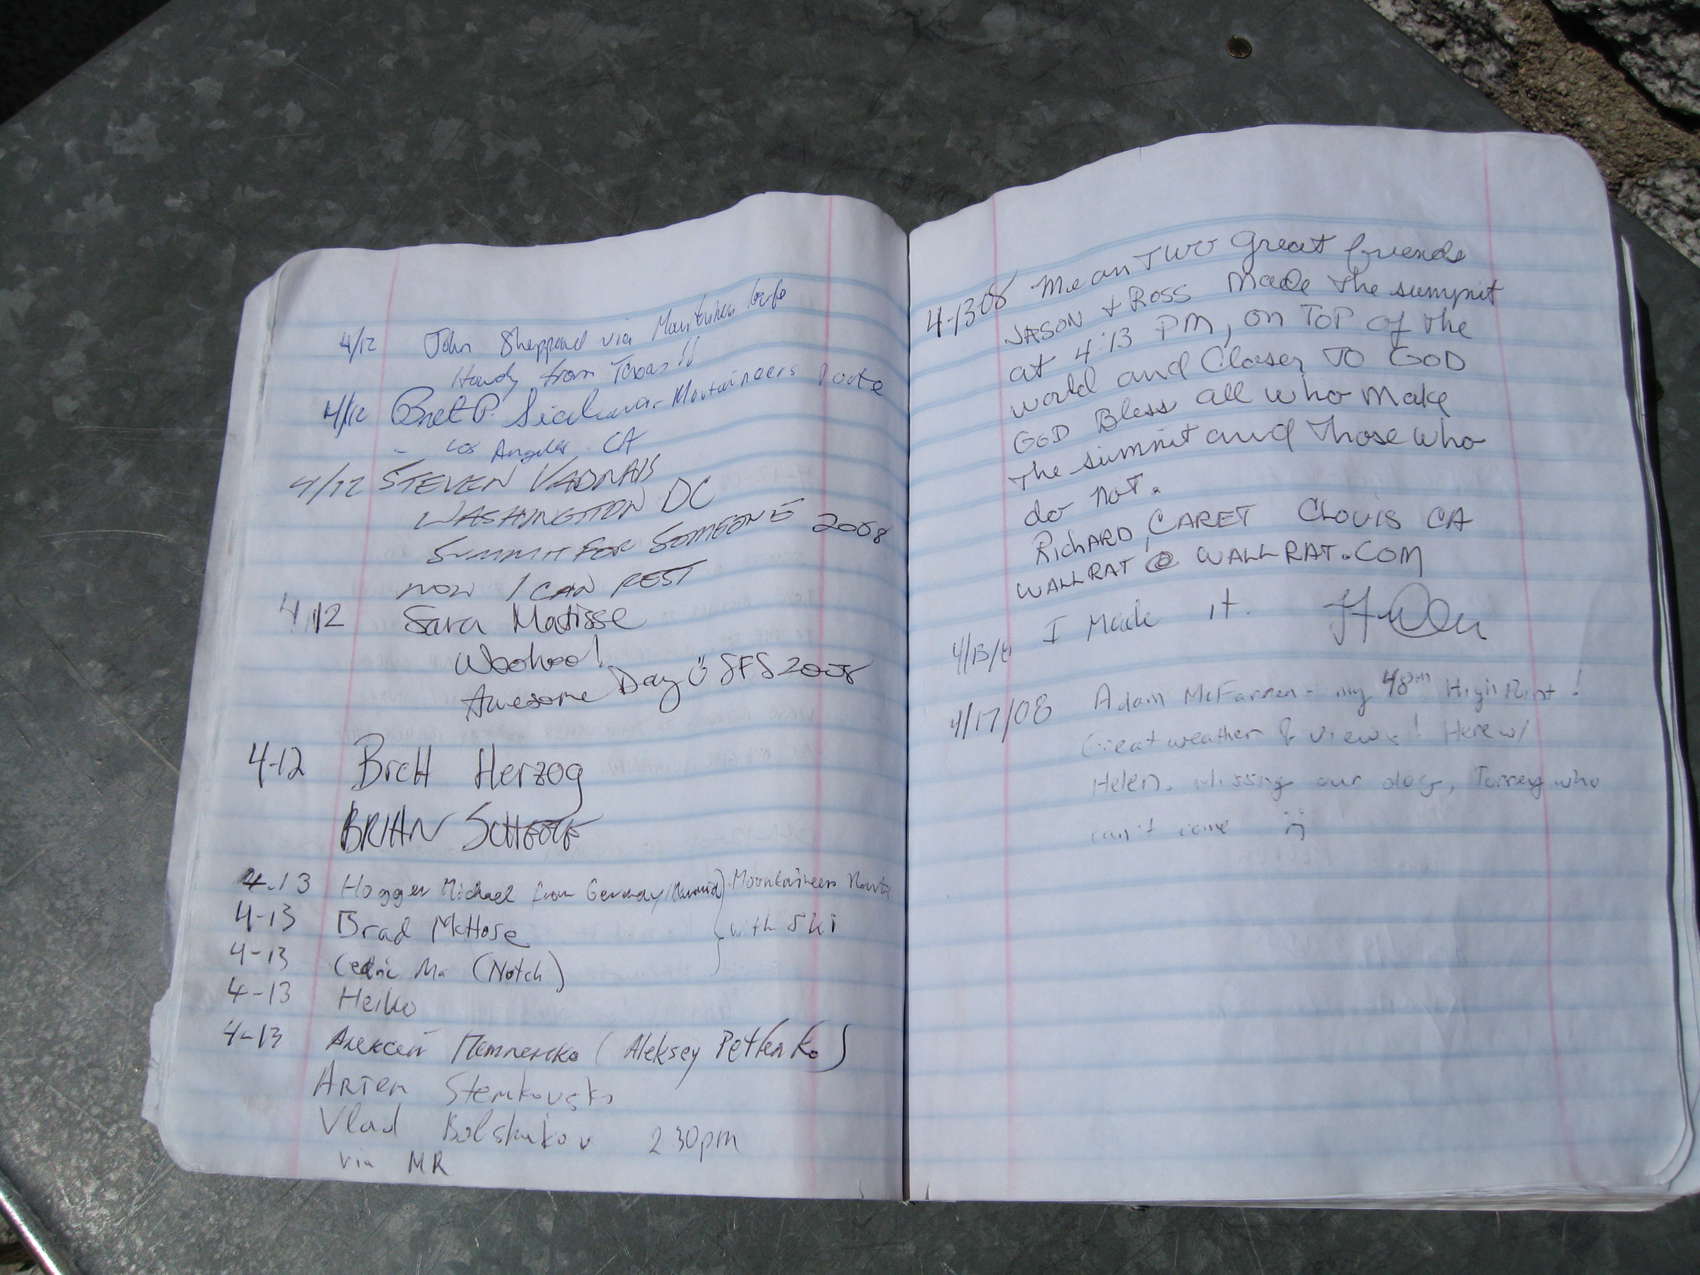 4/12 John Sheppard via Mountaineers Route
Howdy from Texas!!
4/12 Bret P. Mountaineers route
- Los Angeles CA
4/12 STEVEN VADNAIS
WASHINGTON DC
SUMMIT FOR SOMEONE 2008
NOW I CAN REST
4/12 Sara Matisse
Woohoo!
Awesome Day SFS 2008
4-12 Brett Herzog
BRIAN
4-13 Hogger Michael from Germany Mountaineers Route
4-13 Brad McHose with Ski
4-13 Cedric Ma (Notch)
4-13 Heiko
4-13 Алексей Петленко (Aleksey Petlenko)
Artem Stemkovski
Vlad Bolshakov 2 30pm
via MR
4-13 08 Me an TWO great friends
JASON & ROSS Made the summit
at 4:13 PM, on TOP of the
world and Closer TO GOD
GOD Bless all who Make
the summit and those who
do not.
RICHARD CARET CLOVIS CA
WALLRAT@WALLRAT.COM
I Made it.
4/17/08 Adam McFarren - my 48th High Point!
Great weather & views! Here w/
Helen. Missing our dog, Torrey who
can't come :(